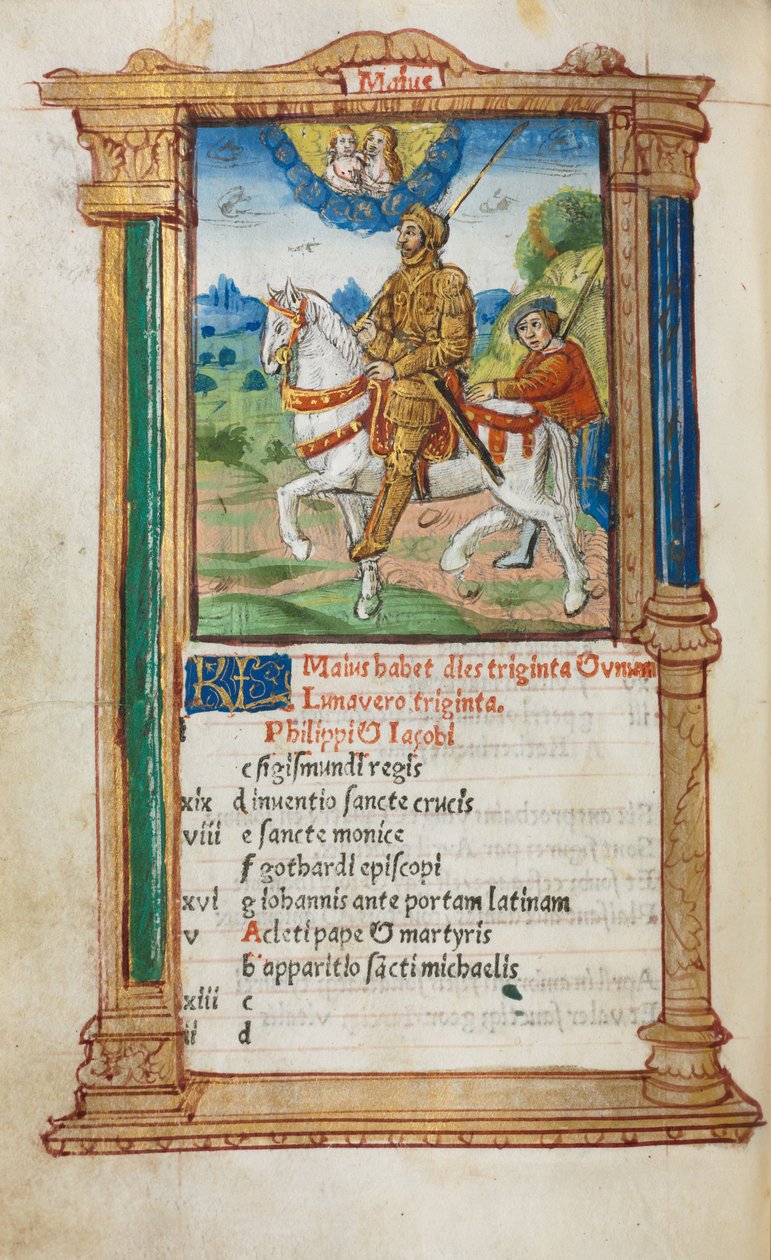 Maius
KLs Maius habet dies triginta & vnum
Luna vero triginta.
i Philippi & Iacobi
c sigismundi regis
xix d inventio sancte crucis
viii e sancte monice
f gothardi episcopi
xvi g iohannis ante portam latinam
v A cleti pape & martyris
b apparitio sācti michaelis
xiii c
ii d